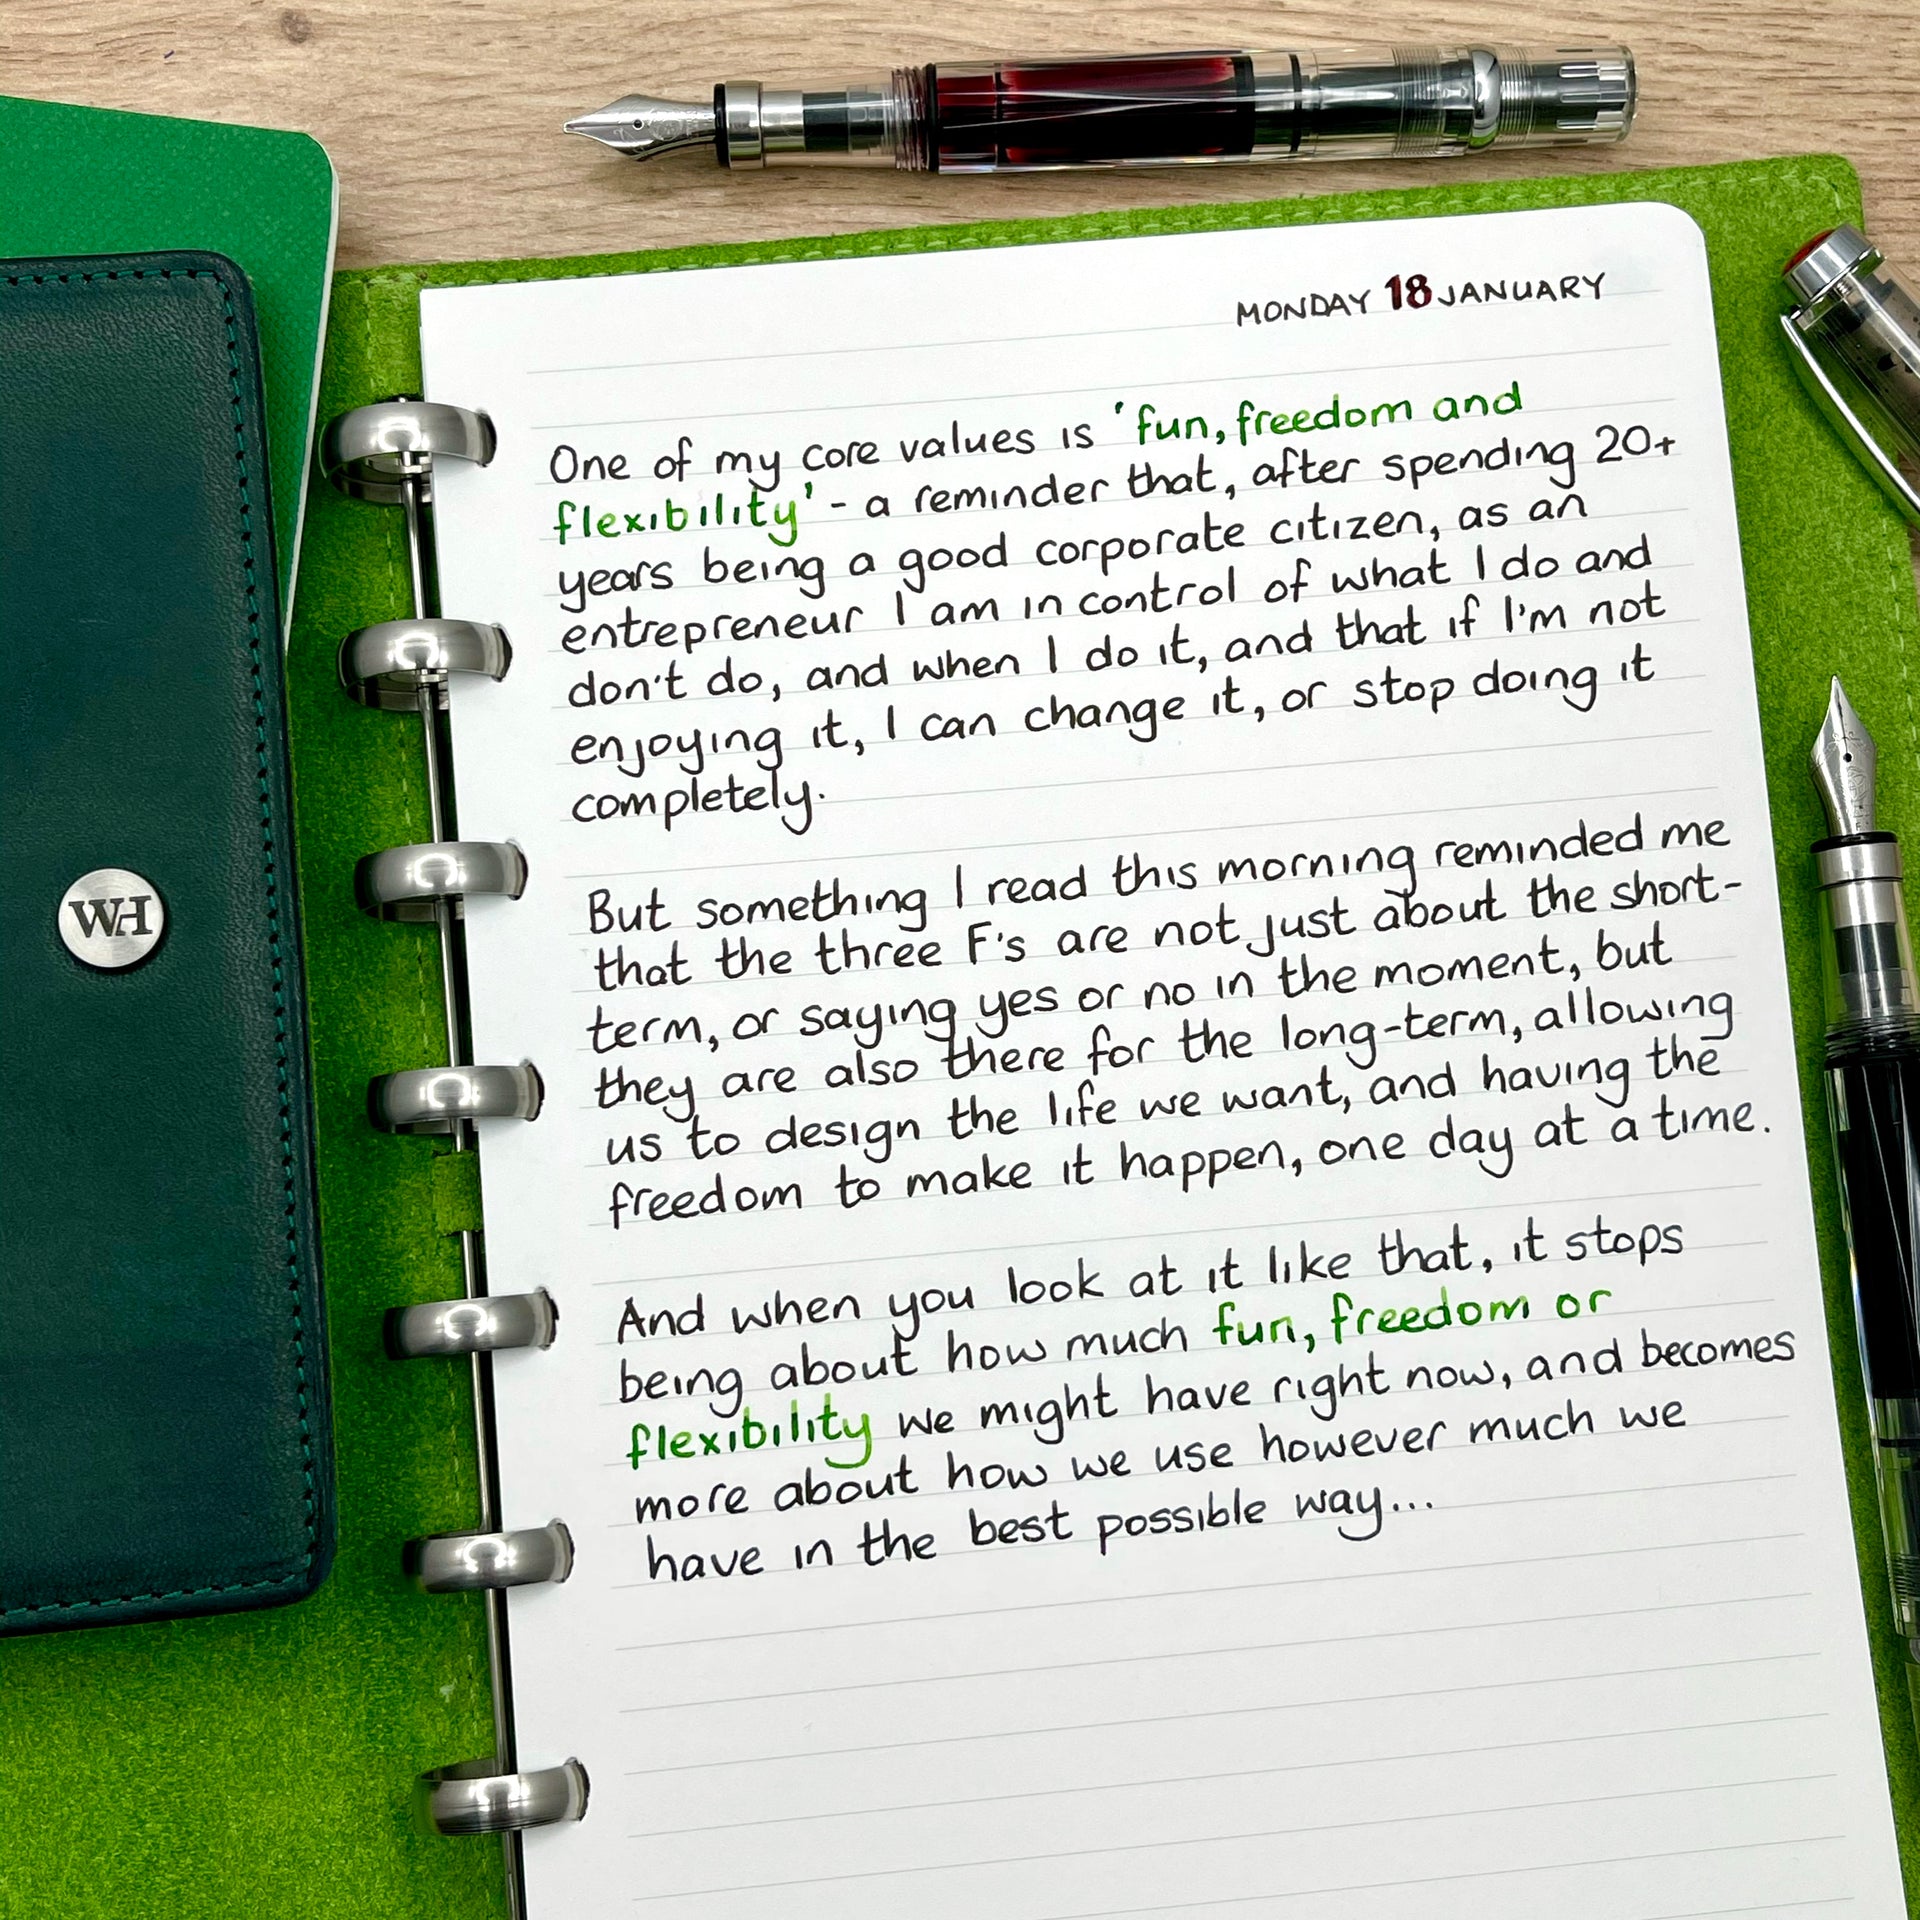 MONDAY 18 JANUARY
One of my core values is 'fun, freedom and
flexibility' - a reminder that, after spending 20+
years being a good corporate citizen, as an
entrepreneur I am in control of what I do and
don't do, and when I do it, and that if I'm not
enjoying it, I can change it, or stop doing it
completely.
But something I read this morning reminded me
that the three F's are not just about the short-
term, or saying yes or no in the moment, but
they are also there for the long-term, allowing
us to design the life we want, and having the
freedom to make it happen, one day at a time.
And when you look at it like that, it stops
being about how much fun, freedom or
flexibility we might have right now, and becomes
more about how we use however much we
have in the best possible way...
WH